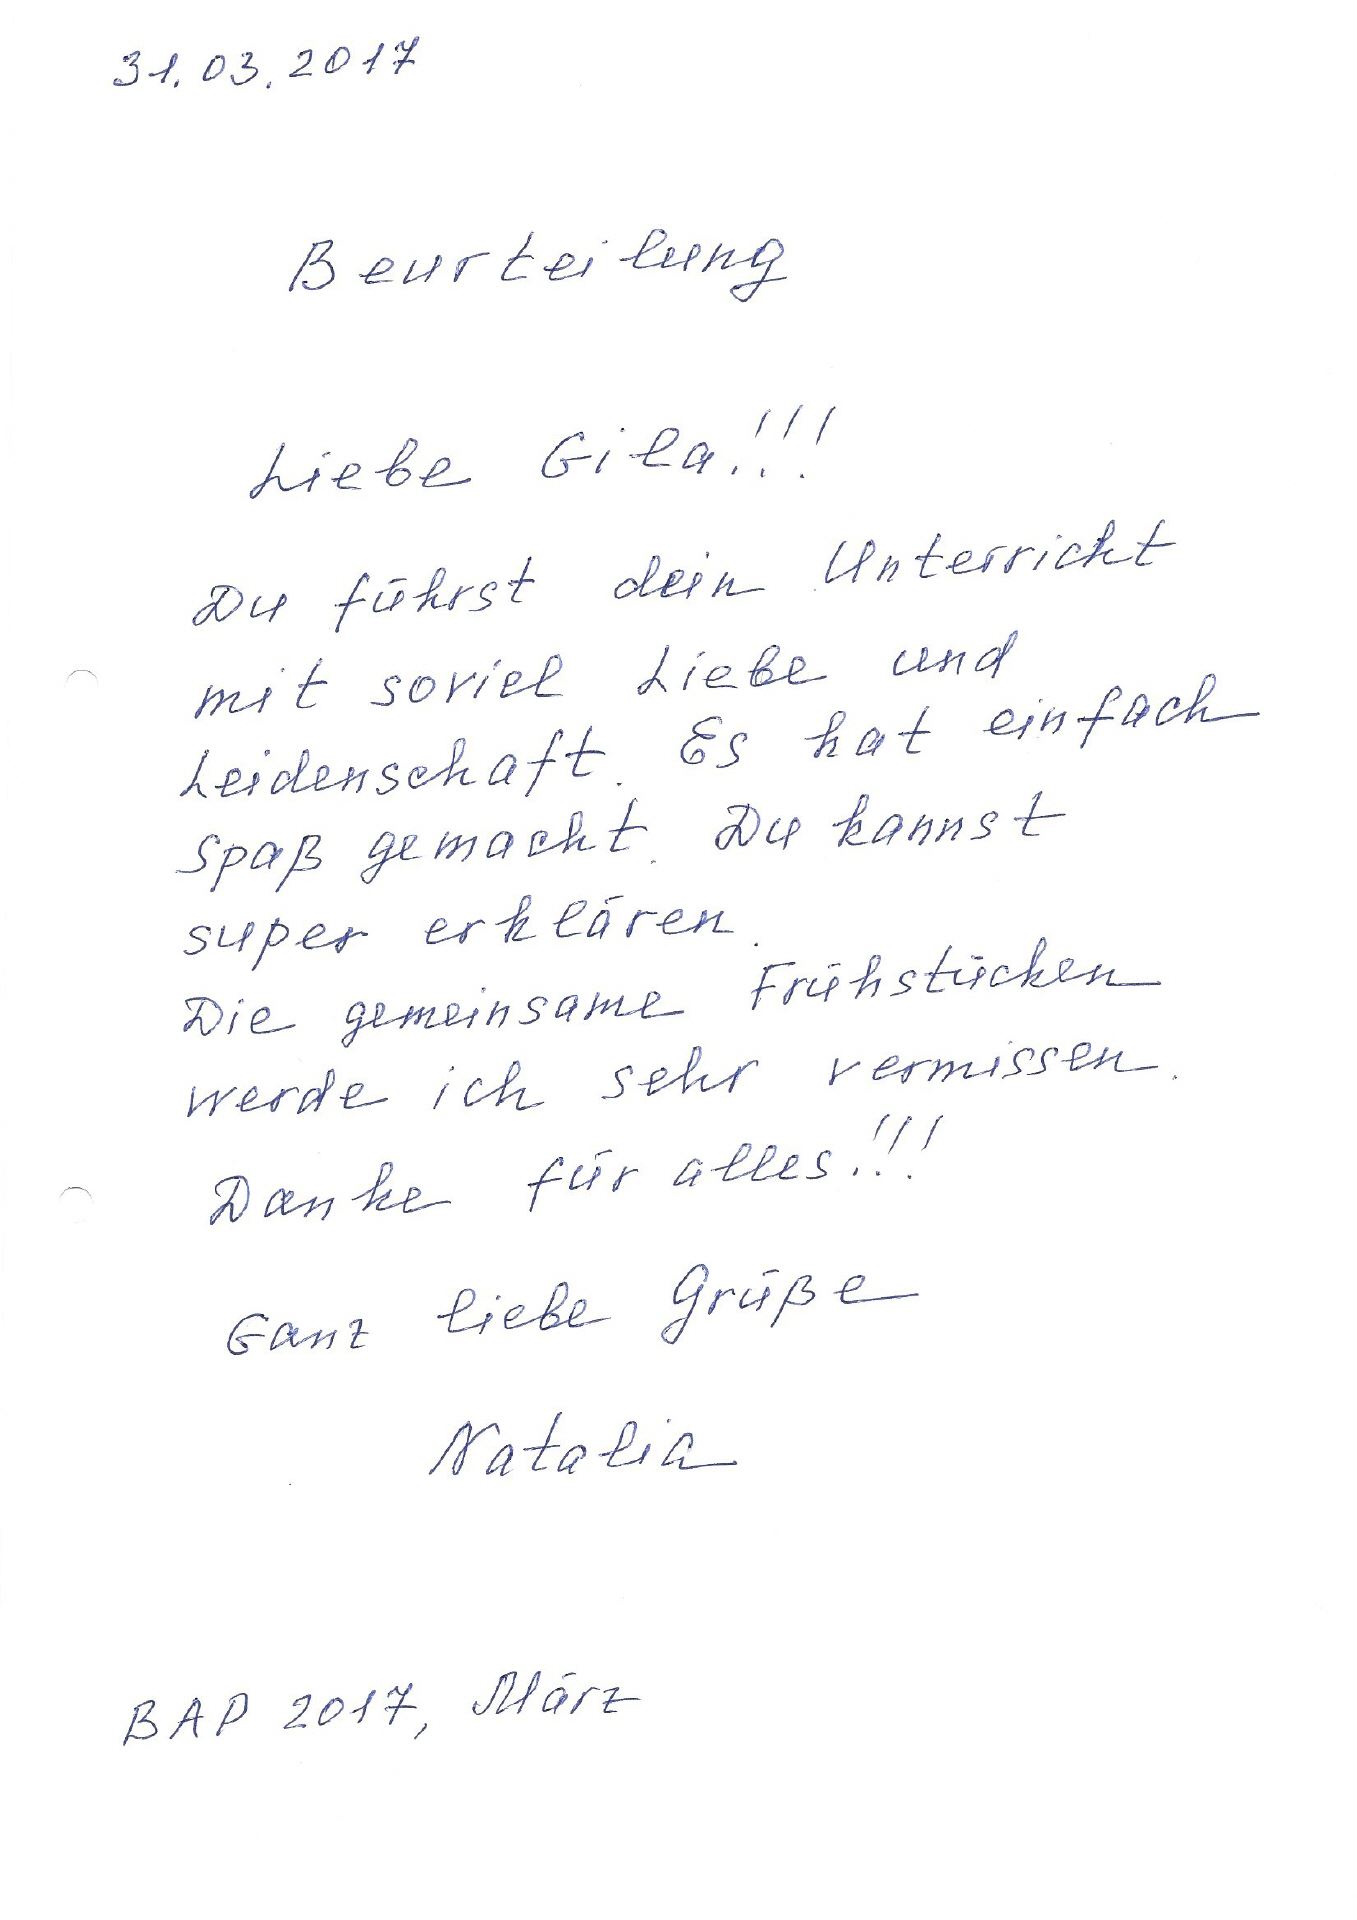 31.03.2017
Beurteilung
Liebe Gila!!!
Du führst dein Unterricht
mit soviel Liebe und
Leidenschaft. Es hat einfach
Spaß gemacht. Du kannst
super erklären.
Die gemeinsame Frühstücken
werde ich sehr vermissen.
Danke für alles!!!
Ganz liebe Grüße
Natalia
BAP 2017, März